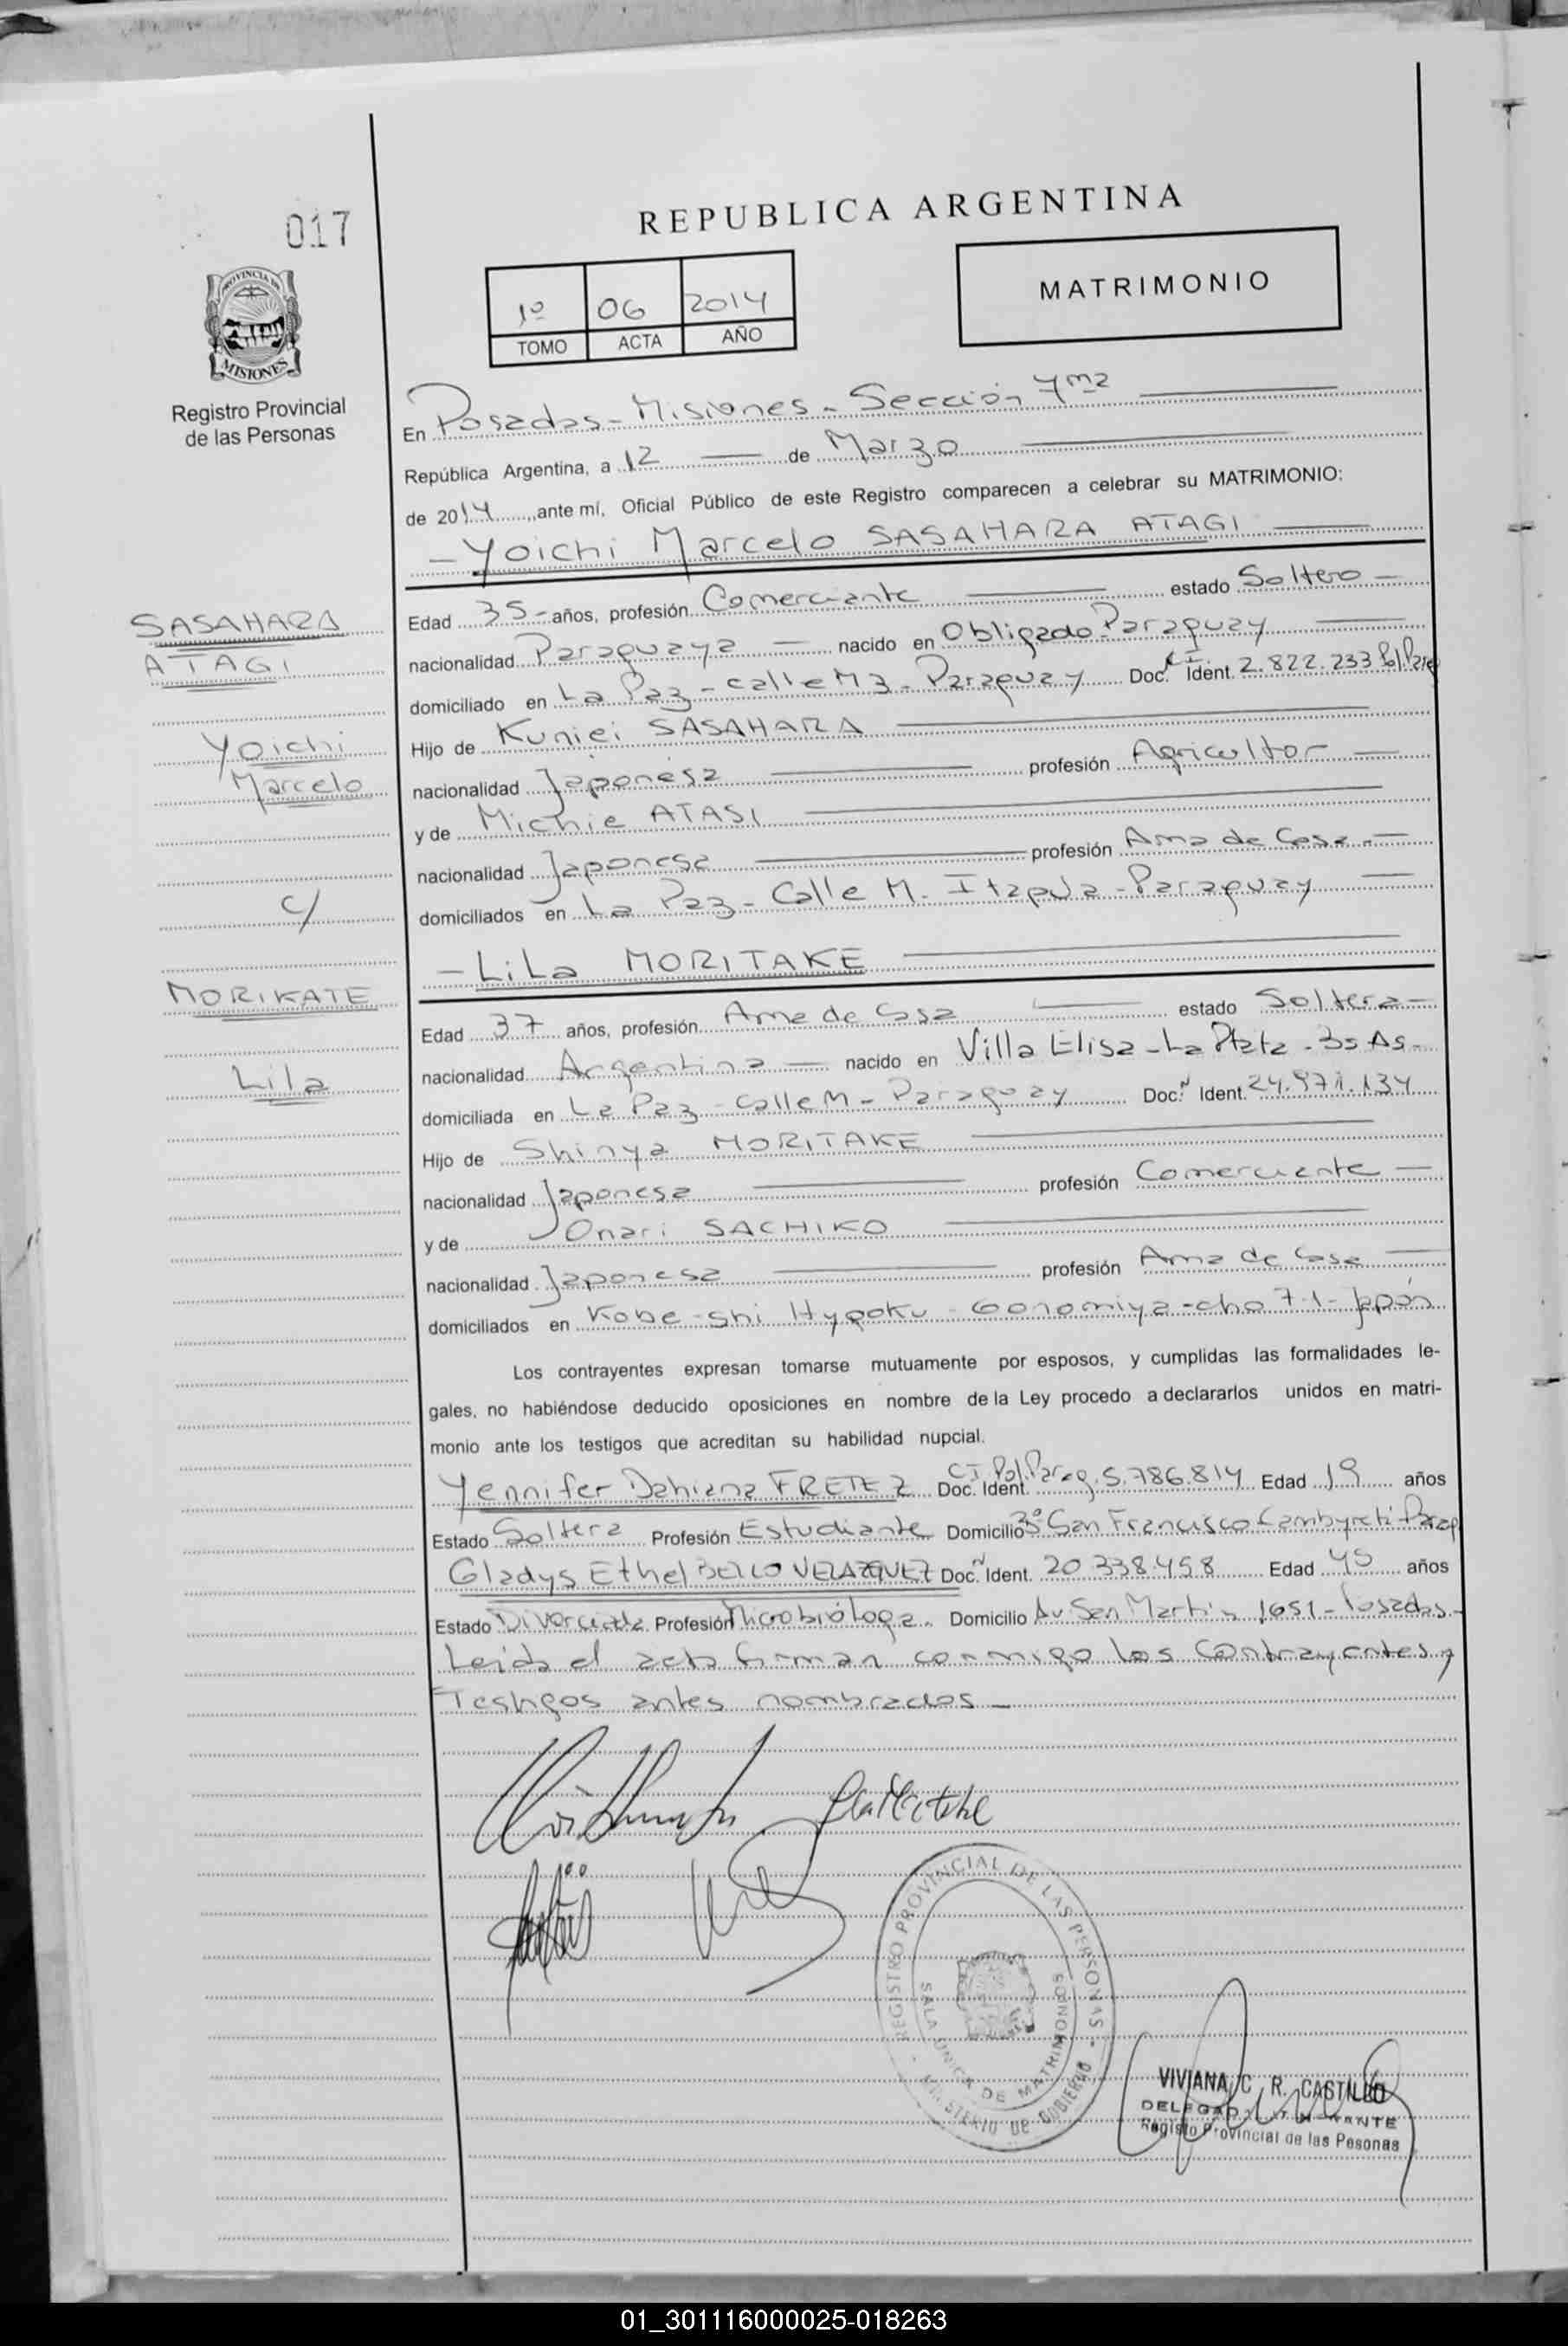 017
REPUBLICA ARGENTINA
1º 06 2014
TOMO ACTA AÑO
MATRIMONIO
PROVINCIA DE MISIONES
Registro Provincial
de las Personas
En Posadas - Misiones - Sección 7ma
República Argentina, a 12 de Marzo
de 2014, ante mí, Oficial Público de este Registro comparecen a celebrar su MATRIMONIO:
- Yoichi Marcelo SASAHARA ATAGI
SASAHARA
ATAGI
Yoichi
Marcelo
c/
MORIKATE
Lila
Edad 35- años, profesión Comerciante estado Soltero -
nacionalidad Paraguaya nacido en Obligado - Paraguay
domiciliado en La Paz - calle M3 - Paraguay Doc. CI. Ident. 2.822.233 Pol. Par
Hijo de Kuniei SASAHARA
nacionalidad Japonesa profesión Agricultor -
y de Michie ATASI
nacionalidad Japonesa profesión Ama de Casa. -
domiciliados en La Paz - Calle M. Itapúa - Paraguay
- Lila MORITAKE
Edad 37 años, profesión Ama de Casa estado Soltera -
nacionalidad Argentina nacido en Villa Elisa - La Plata - Bs As -
domiciliada en La Paz - Calle M - Paraguay Doc. N Ident. 24.971.134
Hijo de Shinya MORITAKE
nacionalidad Japonesa profesión Comerciante -
y de Onari SACHIKO
nacionalidad Japonesa profesión Ama de Casa
domiciliados en Kobe-shi Hyqoku - Gonomiya-cho 7-1 - Japón
Los contrayentes expresan tomarse mutuamente por esposos, y cumplidas las formalidades le-
gales, no habiéndose deducido oposiciones en nombre de la Ley procedo a declararlos unidos en matri-
monio ante los testigos que acreditan su habilidad nupcial.
Yennifer Dahiana FRETEZ Doc. Ident. CI Pol. Parag. 5.786.814 Edad 19 años
Estado Soltera Profesión Estudiante Domicilio Bº San Francisco Cambyretá Parag
Gladys Ethel BELLO VELAZQUEZ Doc. N Ident. 20.338.458 Edad 45 años
Estado Divorciada Profesión Microbióloga Domicilio Av San Martín 1651 - Posadas -
Leida el acta firman conmigo los Contrayentes y
Testigos antes nombrados -
REGISTRO PROVINCIAL DE LAS PERSONAS - MINISTERIO DE GOBIERNO
SALA UNICA DE MATRIMONIOS
VIVIANA C. R. CASTILLO
Registro Provincial de las Pesonas
01_301116000025-018263